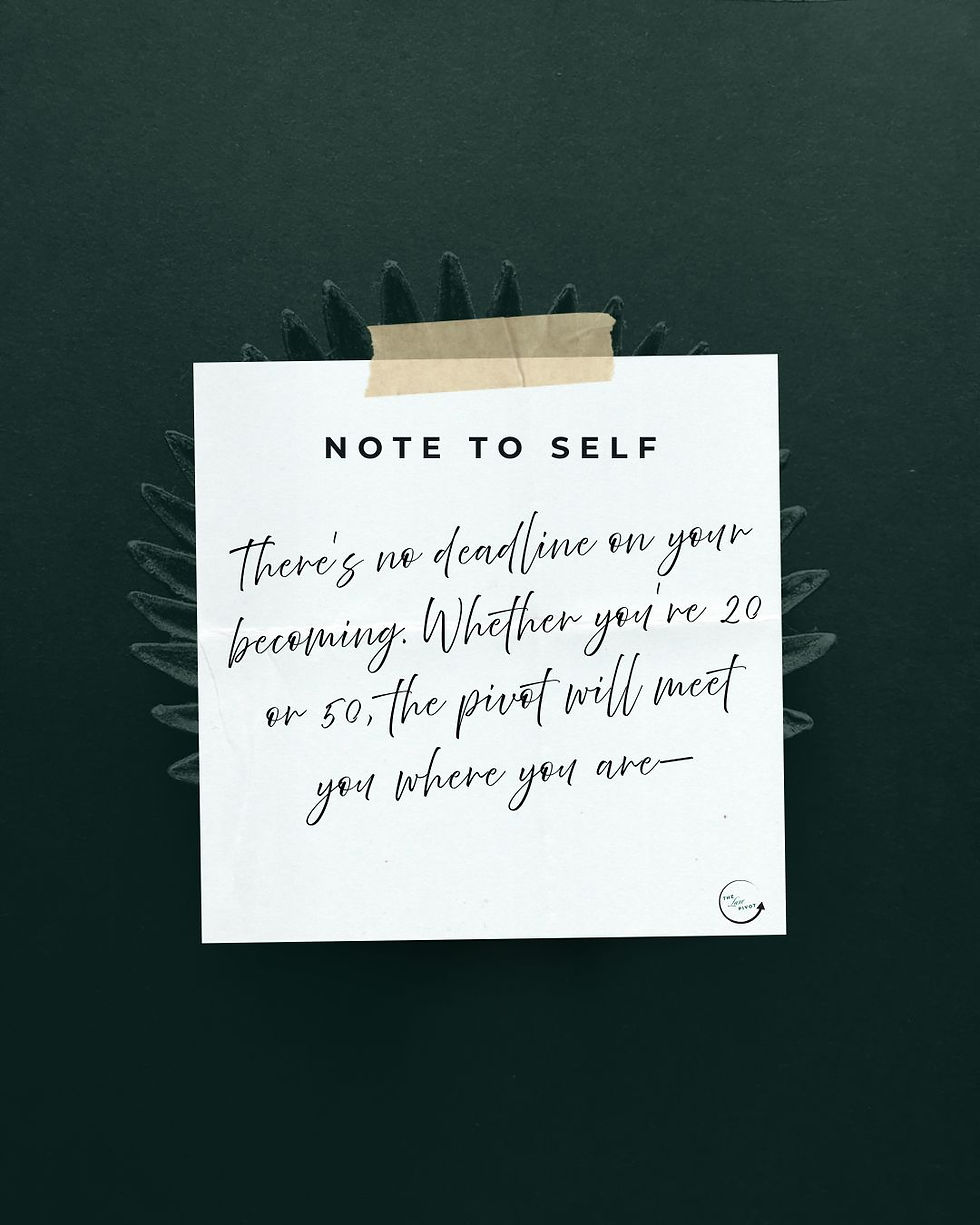 NOTE TO SELF
There's no deadline on your
becoming. Whether you're 20
or 50, the pivot will meet
you where you are—
THE
Law
PIVOT